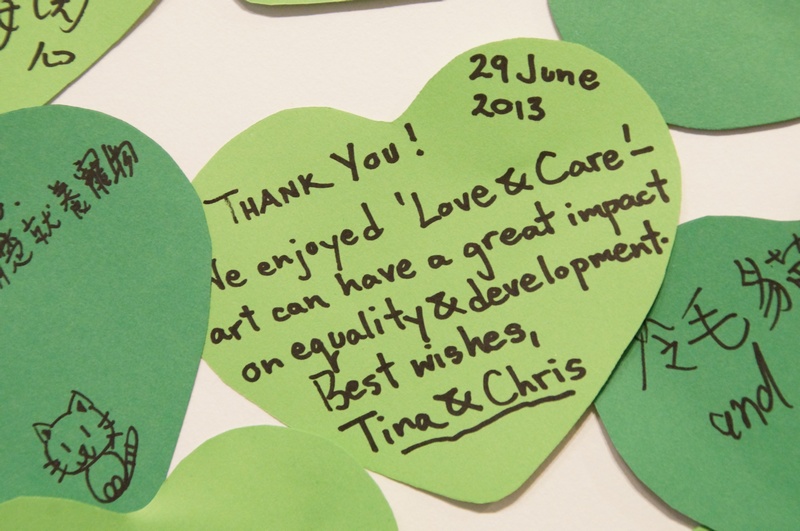 29 June
2013
THANK YOU!
We enjoyed 'Love & Care' –
art can have a great impact
on equality & development.
Best wishes,
Tina & Chris
就養寵物
心
毛
and